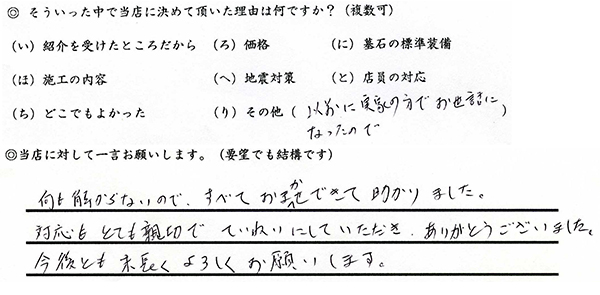 ◎ そういった中で当店に決めて頂いた理由は何ですか？（複数可）
（い）紹介を受けたところだから （ろ）価格 （に）墓石の標準装備
（ほ）施工の内容 （へ）地震対策 （と）店員の対応
（ち）どこでもよかった （り）その他（ 以前に実家の方でお世話に ）
なったので
◎当店に対して一言お願いします。（要望でも結構です）
何も解からないので、すべてお任かせできて助かりました。
対応もとても親切でていねいにしていただき、ありがとうございました。
今後とも末長くよろしくお願いします。